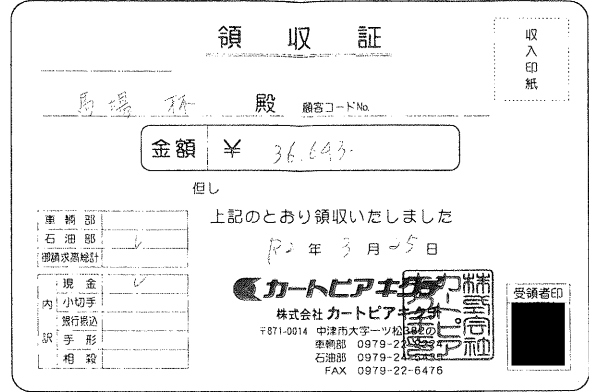 領収証
収入印紙
馬場 殿 顧客コードNo.
金額 ¥ 36,643-
但し
上記のとおり領収いたしました
R2年3月25日
車輌部
石油部 レ
御請求高総計
内訳
現金 レ
小切手
銀行振込
手形
相殺
カートピアキクチ
株式会社 カートピアキクチ
〒871-0014 中津市大字一ツ松
車輌部 0979-22-
石油部 0979-24-
FAX 0979-22-6476
株式会社カートピア
受領者印